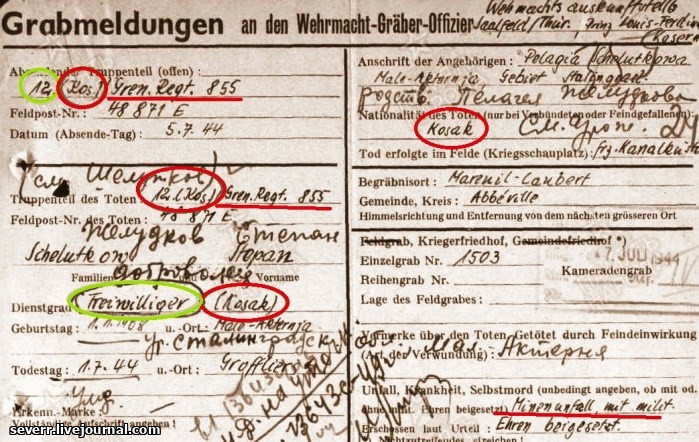 Grabmeldungen an den Wehrmacht-Gräber-Offizier
Wehrmachtsauskunftstelle
Saalfeld/Thür., Prinz Louis-Ferdin
(Kasern
Absendender Truppenteil (offen):
12. (Kos.) Gren. Regt. 855
Feldpost-Nr.: 48 871 E
Datum (Absende-Tag): 5.7.44
(см. Шелутков)
Truppenteil des Toten 12. (Kos) Gren. Regt. 855
Feldpost-Nr. des Toten: 48 871 E
Желудков Степан
Stopan
Familien und Vorname
доброволец
Dienstgrad (Freiwilliger (Kosak)
Geburtstag: 1.1.1908 u.-Ort: Male-Akternja
Сталинградск
Todestag: 1.7.44 u.-Ort: Groffliers
Erkenn.-Marke:
Vollständige Aufschrift angeben!
Anschrift der Angehörigen: Pelagia
Male-Akternja Gebiet Stalingrad
родств. Пелагея Желудкова
Nationalität des Toten (nur bei Verbündeten oder Feindgefallenen):
Kosak
См.
Tod erfolgte im Felde (Kriegsschauplatz):
Begräbnisort: Mareuil-Caubert
Gemeinde, Kreis: Abbéville
Himmelsrichtung und Entfernung von dem nächsten grösseren Ort
Feldgrab, Kriegerfriedhof, Gemeindefriedhof *)
Einzelgrab Nr. 1503
7. JULI 1944
Reihengrab Nr. Kameradengrab
Lage des Feldgrabes:
Vermerke über den Toten: Getötet durch Feindeinwirkung
(Art der Verwundung): Актерня
Unfall, Krankheit, Selbstmord (unbedingt angeben, ob mit od.
ohne milit. Ehren beigesetzt) Minenunfall, mit milit.
Erschossen laut Urteil: Ehren beigesetzt.
Nichtzutreffendes streichen.
severr.livejournal.com